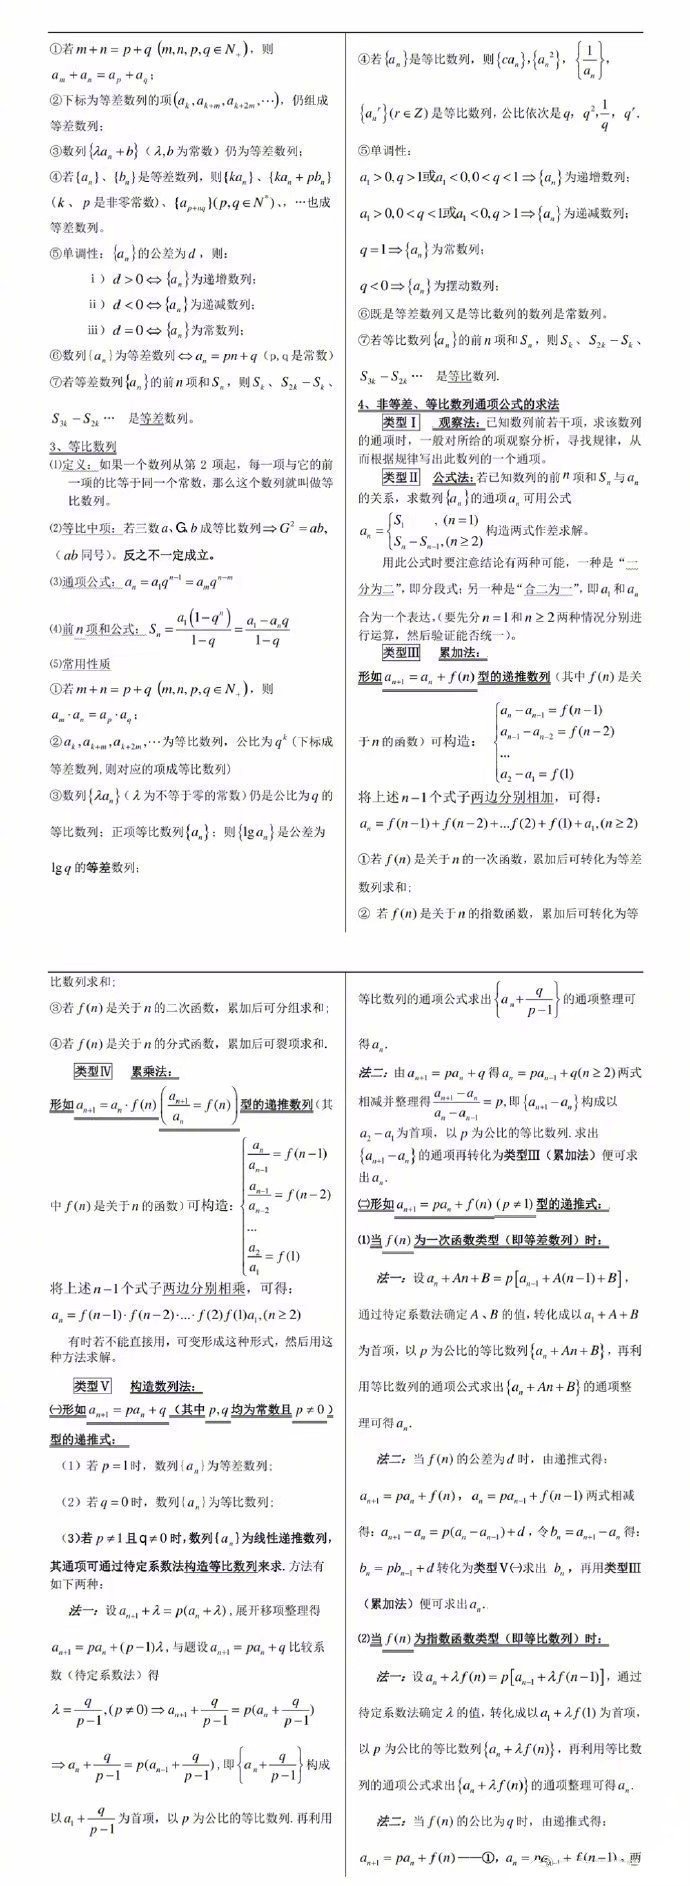 ①若 m+n=p+q (m,n,p,q∈N₊)，则
aₘ+aₙ=aₚ+a_q；
②下标为等差数列的项(a_k,a_{k+m},a_{k+2m},⋯)，仍组成
等差数列；
③数列{λaₙ+b}（λ,b为常数）仍为等差数列；
④若{aₙ}、{bₙ}是等差数列，则{kaₙ}、{kaₙ+pbₙ}
(k、p是非零常数)、{a_{p+nq}}(p,q∈N*)、，…也成
等差数列。
⑤单调性：{aₙ}的公差为d，则：
ⅰ）d>0⇔{aₙ}为递增数列；
ⅱ）d<0⇔{aₙ}为递减数列；
ⅲ）d=0⇔{aₙ}为常数列；
⑥数列{aₙ}为等差数列⇔aₙ=pn+q（p,q是常数）
⑦若等差数列{aₙ}的前n项和Sₙ，则S_k、S_{2k}−S_k、
S_{3k}−S_{2k}… 是等差数列。
3、等比数列
⑴定义：如果一个数列从第2项起，每一项与它的前
一项的比等于同一个常数，那么这个数列就叫做等
比数列。
⑵等比中项：若三数a、G、b成等比数列⇒G²=ab,
（ab同号）。反之不一定成立。
⑶通项公式：aₙ=a₁qⁿ⁻¹=aₘqⁿ⁻ᵐ
⑷前n项和公式：Sₙ=a₁(1−qⁿ)/(1−q)=(a₁−aₙq)/(1−q)
⑸常用性质
①若m+n=p+q (m,n,p,q∈N₊)，则
aₘ·aₙ=aₚ·a_q；
②a_k,a_{k+m},a_{k+2m},⋯为等比数列，公比为q^k(下标成
等差数列,则对应的项成等比数列)
③数列{λaₙ}（λ为不等于零的常数）仍是公比为q的
等比数列；正项等比数列{aₙ}；则{lgaₙ}是公差为
lgq的等差数列；
④若{aₙ}是等比数列，则{caₙ},{aₙ²}，{1/aₙ}，
{aₙʳ}(r∈Z)是等比数列，公比依次是q，q²,1/q，qʳ.
⑤单调性：
a₁>0,q>1或a₁<0,0<q<1⇒{aₙ}为递增数列；
a₁>0,0<q<1或a₁<0,q>1⇒{aₙ}为递减数列；
q=1⇒{aₙ}为常数列；
q<0⇒{aₙ}为摆动数列；
⑥既是等差数列又是等比数列的数列是常数列。
⑦若等比数列{aₙ}的前n项和Sₙ，则S_k、S_{2k}−S_k、
S_{3k}−S_{2k}… 是等比数列.
4、非等差、等比数列通项公式的求法
类型Ⅰ 观察法：已知数列前若干项，求该数列
的通项时，一般对所给的项观察分析，寻找规律，从
而根据规律写出此数列的一个通项。
类型Ⅱ 公式法：若已知数列的前n项和Sₙ与aₙ
的关系，求数列{aₙ}的通项aₙ可用公式
aₙ={S₁ ,(n=1) Sₙ−Sₙ₋₁,(n≥2) 构造两式作差求解。
用此公式时要注意结论有两种可能，一种是“一
分为二”，即分段式；另一种是“合二为一”，即a₁和aₙ
合为一个表达，(要先分n=1和n≥2两种情况分别进
行运算，然后验证能否统一)。
类型Ⅲ 累加法：
形如aₙ₊₁=aₙ+f(n)型的递推数列（其中f(n)是关
于n的函数）可构造：
{aₙ−aₙ₋₁=f(n−1)
aₙ₋₁−aₙ₋₂=f(n−2)
...
a₂−a₁=f(1)
将上述n−1个式子两边分别相加，可得：
aₙ=f(n−1)+f(n−2)+...f(2)+f(1)+a₁,(n≥2)
①若f(n)是关于n的一次函数，累加后可转化为等差
数列求和;
② 若f(n)是关于n的指数函数，累加后可转化为等
比数列求和;
③若f(n)是关于n的二次函数，累加后可分组求和;
④若f(n)是关于n的分式函数，累加后可裂项求和.
类型Ⅳ 累乘法：
形如aₙ₊₁=aₙ·f(n)(aₙ₊₁/aₙ=f(n))型的递推数列（其
中f(n)是关于n的函数）可构造：
{aₙ/aₙ₋₁=f(n−1)
aₙ₋₁/aₙ₋₂=f(n−2)
...
a₂/a₁=f(1)
将上述n−1个式子两边分别相乘，可得：
aₙ=f(n−1)·f(n−2)·...·f(2)f(1)a₁,(n≥2)
有时若不能直接用，可变形成这种形式，然后用这
种方法求解。
类型Ⅴ 构造数列法：
㈠形如aₙ₊₁=paₙ+q（其中p,q均为常数且p≠0）
型的递推式：
（1）若p=1时，数列{aₙ}为等差数列;
（2）若q=0时，数列{aₙ}为等比数列;
（3)若p≠1且q≠0时，数列{aₙ}为线性递推数列，
其通项可通过待定系数法构造等比数列来求.方法有
如下两种：
法一：设aₙ₊₁+λ=p(aₙ+λ),展开移项整理得
aₙ₊₁=paₙ+(p−1)λ,与题设aₙ₊₁=paₙ+q比较系
数（待定系数法）得
λ=q/(p−1),(p≠0)⇒aₙ₊₁+q/(p−1)=p(aₙ+q/(p−1))
⇒aₙ+q/(p−1)=p(aₙ₋₁+q/(p−1)),即{aₙ+q/(p−1)}构成
以a₁+q/(p−1)为首项，以p为公比的等比数列.再利用
等比数列的通项公式求出{aₙ+q/(p−1)}的通项整理可
得aₙ.
法二：由aₙ₊₁=paₙ+q得aₙ=paₙ₋₁+q(n≥2)两式
相减并整理得(aₙ₊₁−aₙ)/(aₙ−aₙ₋₁)=p,即{aₙ₊₁−aₙ}构成以
a₂−a₁为首项，以p为公比的等比数列.求出
{aₙ₊₁−aₙ}的通项再转化为类型Ⅲ（累加法）便可求
出aₙ.
㈡形如aₙ₊₁=paₙ+f(n)(p≠1)型的递推式：
⑴当f(n)为一次函数类型（即等差数列）时：
法一：设aₙ+An+B=p[aₙ₋₁+A(n−1)+B]，
通过待定系数法确定A、B的值，转化成以a₁+A+B
为首项，以p为公比的等比数列{aₙ+An+B}，再利
用等比数列的通项公式求出{aₙ+An+B}的通项整
理可得aₙ.
法二：当f(n)的公差为d时，由递推式得：
aₙ₊₁=paₙ+f(n)，aₙ=paₙ₋₁+f(n−1)两式相减
得：aₙ₊₁−aₙ=p(aₙ−aₙ₋₁)+d，令bₙ=aₙ₊₁−aₙ得：
bₙ=pbₙ₋₁+d转化为类型Ⅴ㈠求出 bₙ，再用类型Ⅲ
（累加法）便可求出aₙ.
⑵当f(n)为指数函数类型（即等比数列）时：
法一：设aₙ+λf(n)=p[aₙ₋₁+λf(n−1)]，通过
待定系数法确定λ的值，转化成以a₁+λf(1)为首项，
以p为公比的等比数列{aₙ+λf(n)}，再利用等比数
列的通项公式求出{aₙ+λf(n)}的通项整理可得aₙ.
法二：当f(n)的公比为q时，由递推式得：
aₙ₊₁=paₙ+f(n)——①，aₙ=paₙ₋₁+f(n−1)，两